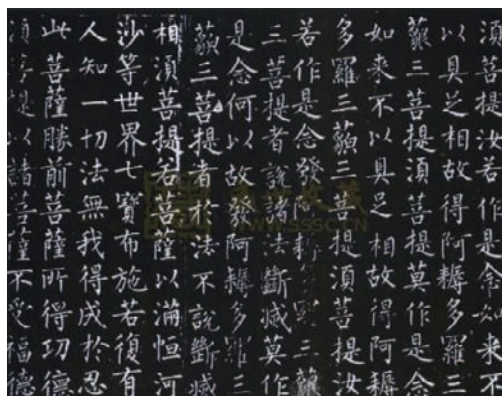 須菩提汝若作是念如來不
以具足相故得阿耨多羅三
藐三菩提須菩提莫作是念
如來不以具足相故得阿耨
多羅三藐三菩提須菩提汝
若作是念發阿耨多羅三藐
三菩提者說諸法斷滅莫作
是念何以故發阿耨多羅三
藐三菩提者於法不說斷滅
相須菩提若菩薩以滿恒河
沙等世界七寶布施若復有
人知一切法無我得成於忍
此菩薩勝前菩薩所得功德
須菩提以諸菩薩不受福德
WWW.SSSC.CN